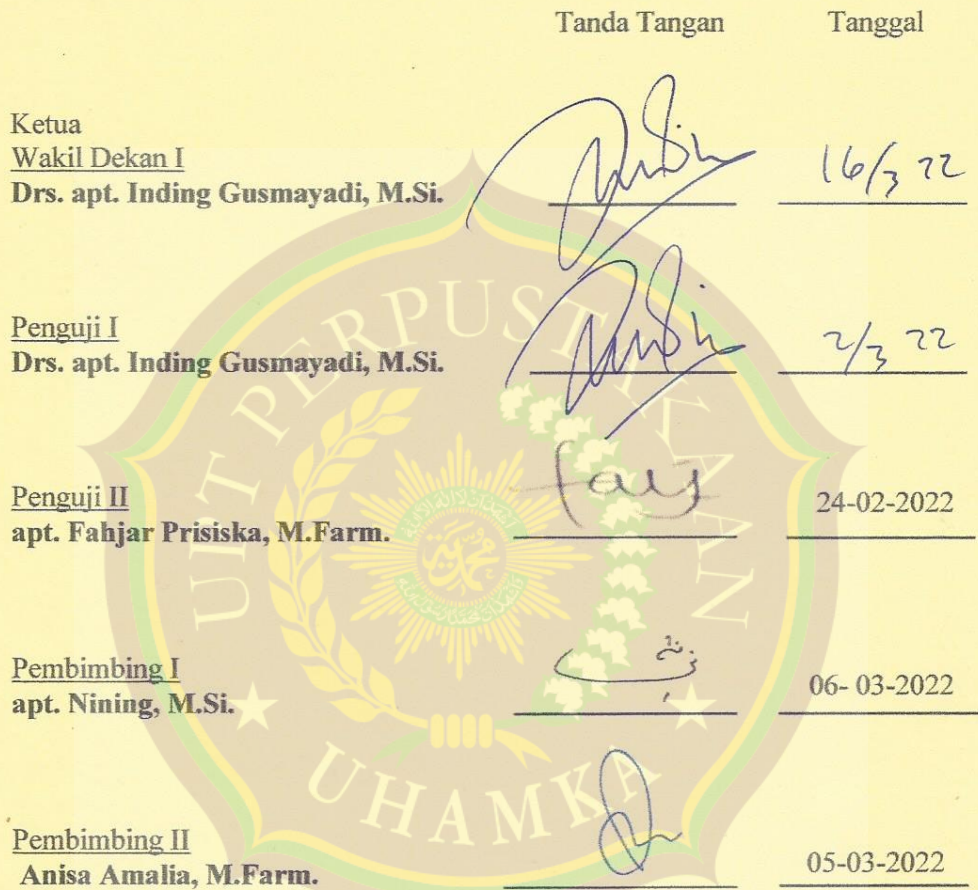 Tanda Tangan Tanggal
Ketua
Wakil Dekan I
Drs. apt. Inding Gusmayadi, M.Si. 16/3 22
Penguji I
Drs. apt. Inding Gusmayadi, M.Si. 2/3 22
Penguji II
apt. Fahjar Prisiska, M.Farm. 24-02-2022
Pembimbing I
apt. Nining, M.Si. 06- 03-2022
Pembimbing II
Anisa Amalia, M.Farm. 05-03-2022
UPT PERPUSTAKAAN
UHAMKA